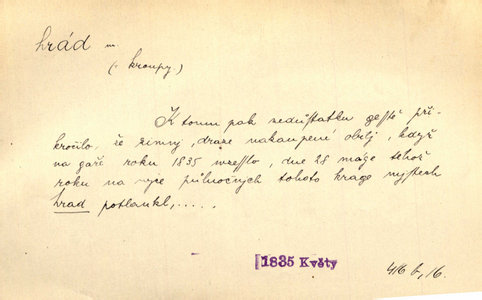 hrád m
(: kroupy)
K tomu pak nedůstatku geště při-
kročilo, že zimny, draze nakaupené obilj, když
na gaří roku 1835 wzesslo, dne 28 máge téhož
roku na wjce půlnočnych tohoto krage mjstech
hrad potlaukl,.....
1835 Květy
416 b, 16.